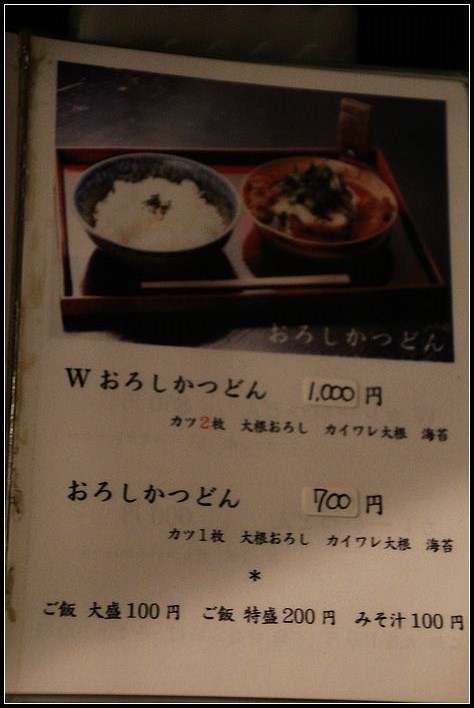 おろしかつどん
W おろしかつどん 1,000 円
カツ2枚 大根おろし カイワレ大根 海苔
おろしかつどん 700 円
カツ1枚 大根おろし カイワレ大根 海苔
*
ご飯 大盛100円 ご飯 特盛200円 みそ汁100円